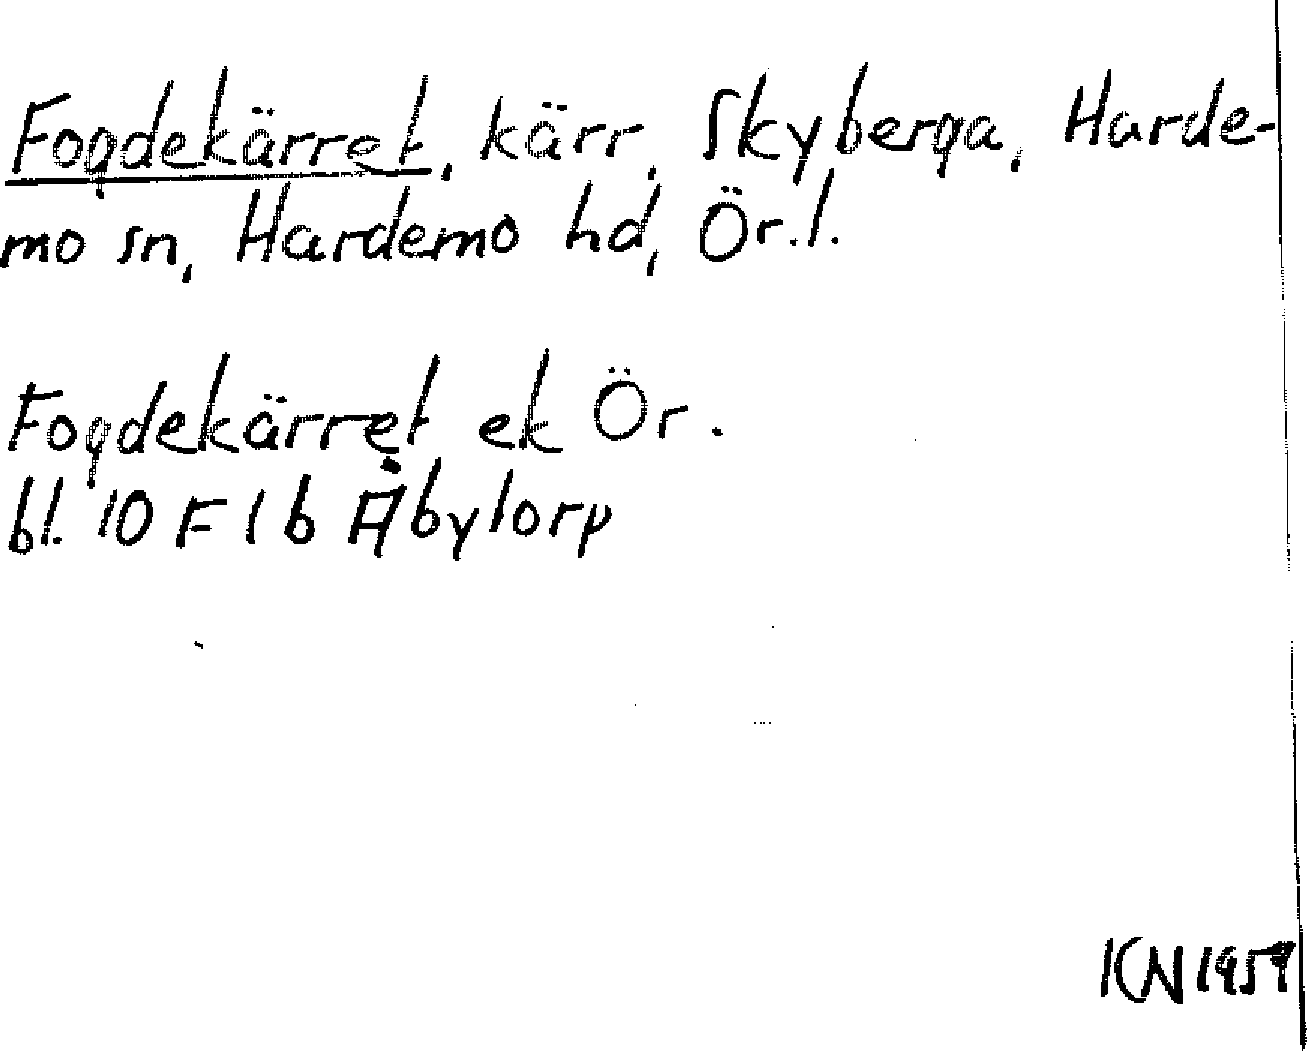 Fogdekärret, kärr, Skyberga, Harde-
mo sn, Hardemo hd, Ör.l.
Fogdekärret ek Ör.
bl. 10 F 1 b Åbytorp
KN 1959